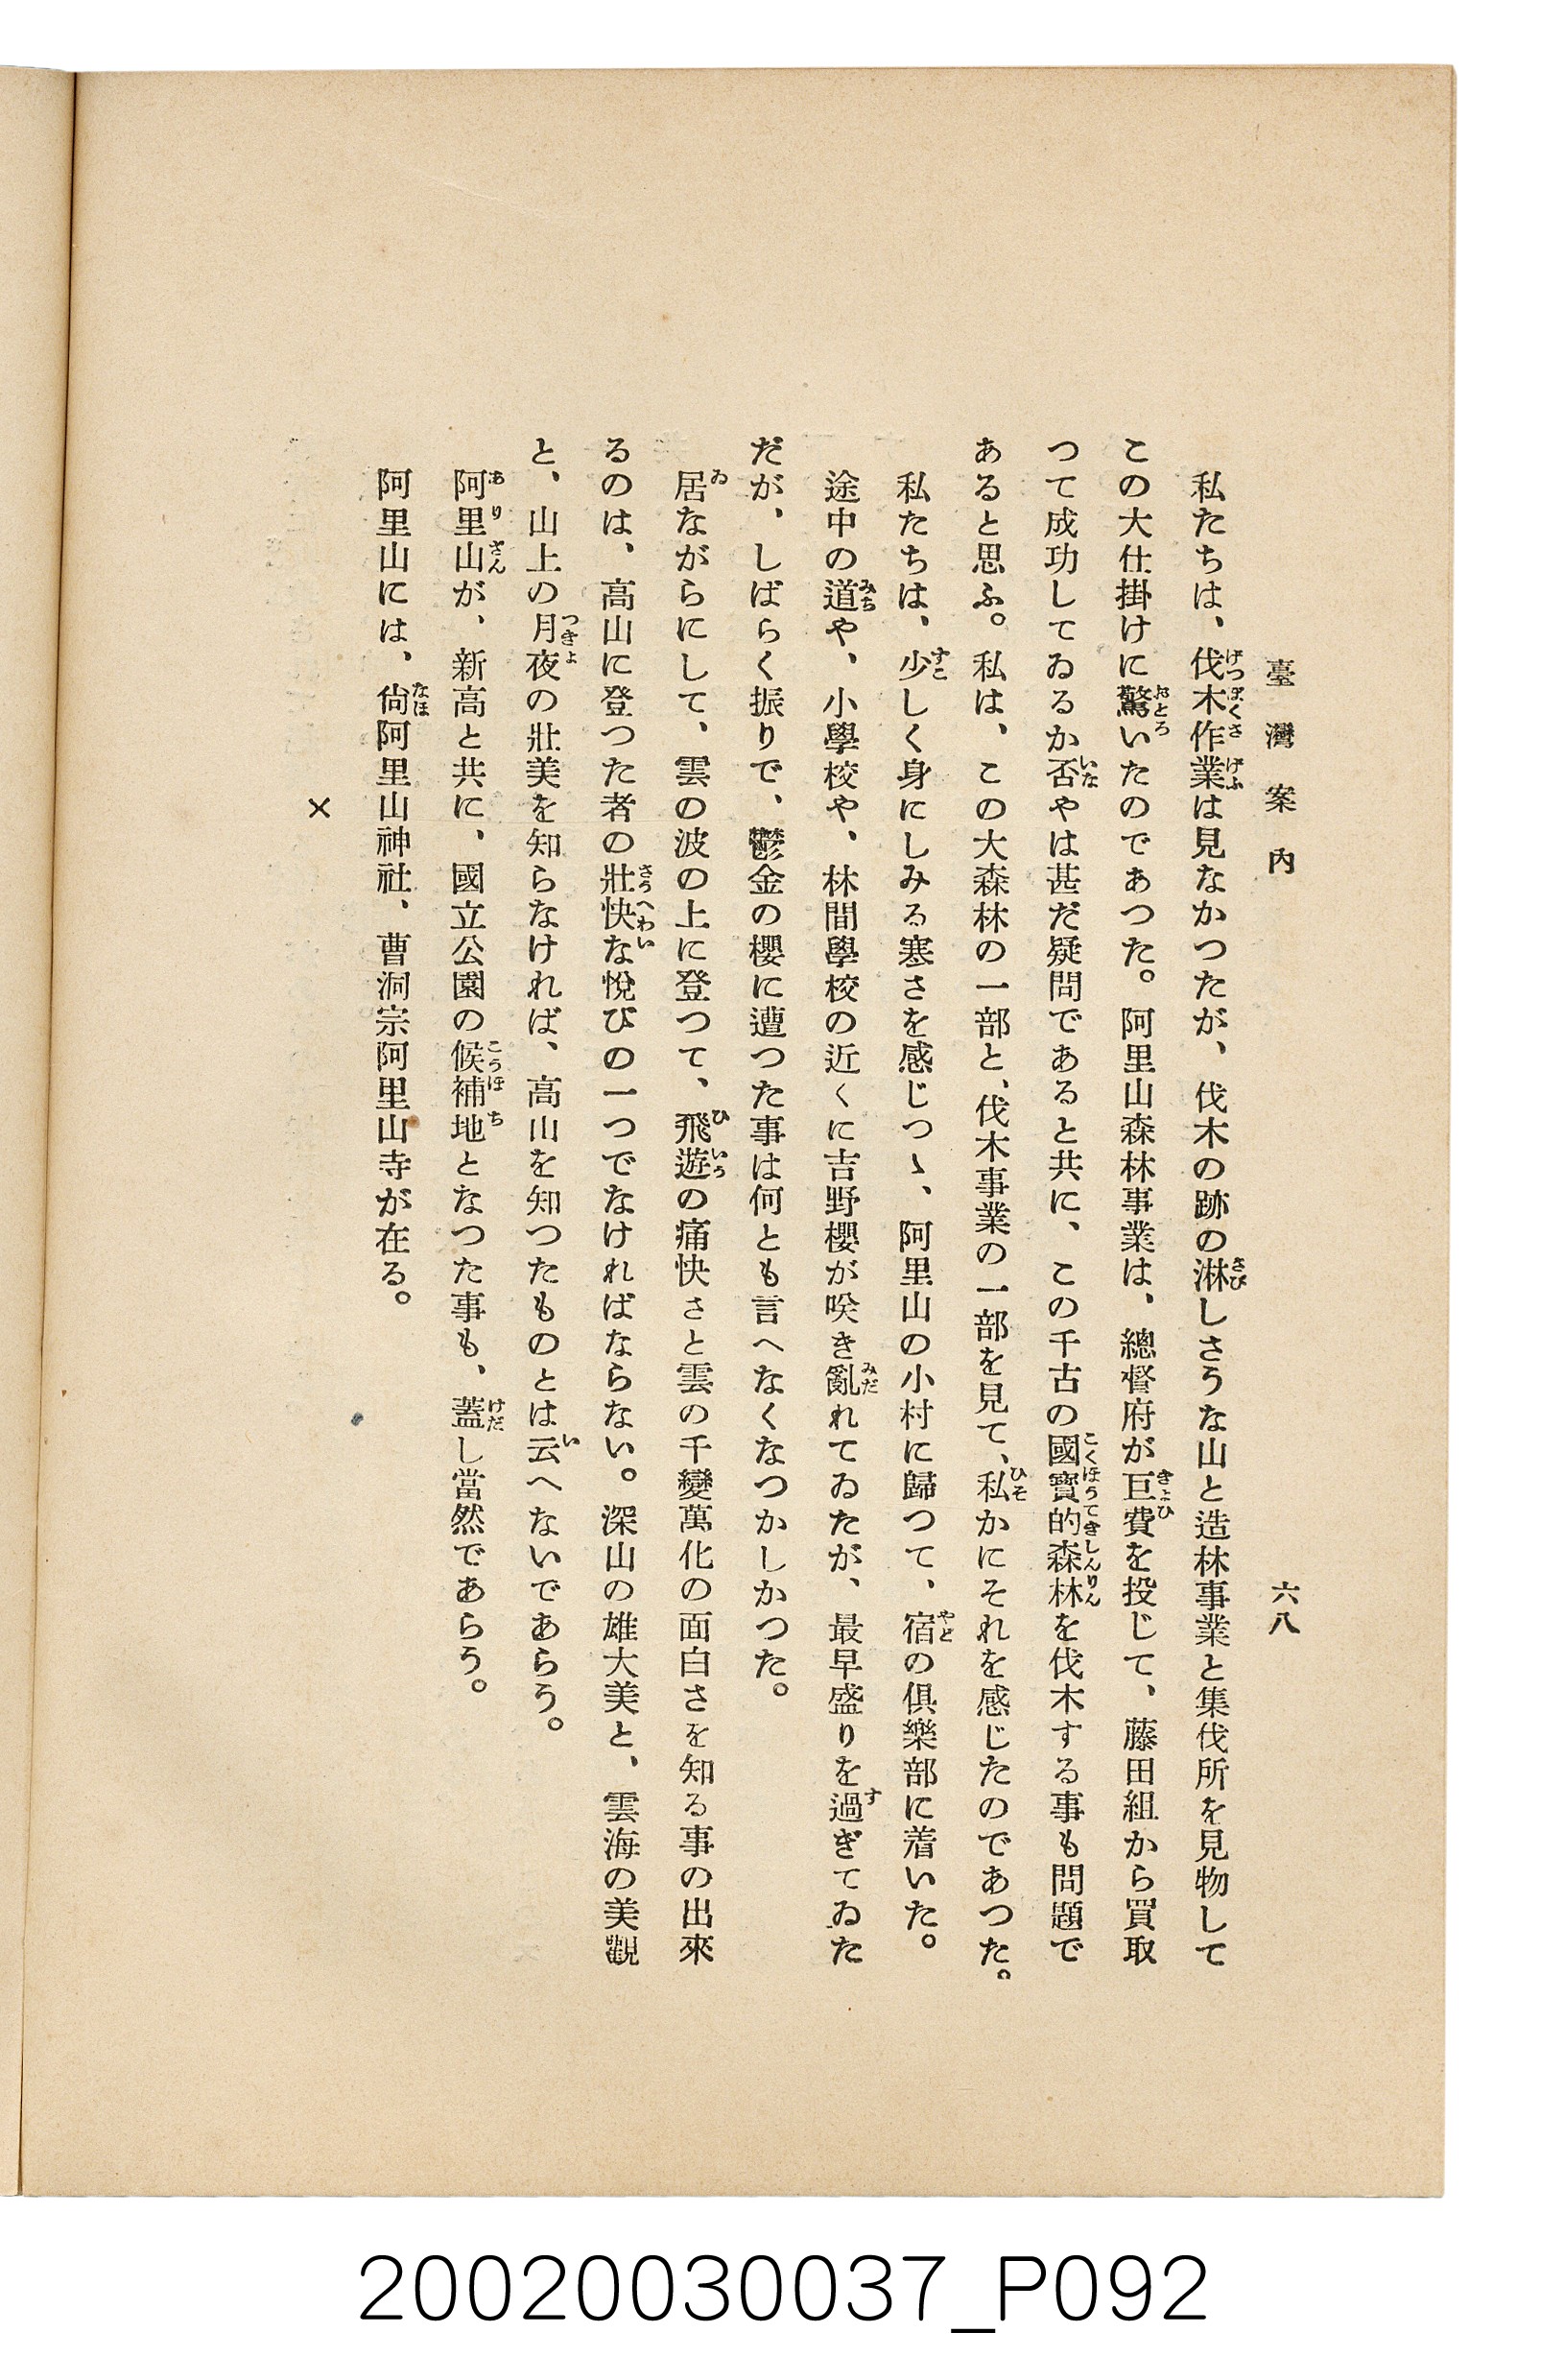 臺灣案內
六八
私たちは、伐木作業は見なかつたが、伐木の跡の淋しさうな山と造林事業と集伐所を見物して
この大仕掛けに驚いたのであつた。阿里山森林事業は、總督府が巨費を投じて、藤田組から買取
つて成功してゐるか否やは甚だ疑問であると共に、この千古の國寶的森林を伐木する事も問題で
あると思ふ。私は、この大森林の一部と、伐木事業の一部を見て、私かにそれを感じたのであつた。
私たちは、少しく身にしみる寒さを感じつゝ、阿里山の小村に歸つて、宿の俱樂部に着いた。
途中の道や、小學校や、林間學校の近くに吉野櫻が咲き亂れてゐたが、最早盛りを過ぎてゐた
だが、しばらく振りで、鬱金の櫻に遭つた事は何とも言へなくなつかしかつた。
居ながらにして、雲の波の上に登つて、飛遊の痛快さと雲の千變萬化の面白さを知る事の出來
るのは、高山に登つた者の壯快な悅びの一つでなければならない。深山の雄大美と、雲海の美觀
と、山上の月夜の壯美を知らなければ、高山を知つたものとは云へないであらう。
阿里山が、新高と共に、國立公園の候補地となつた事も、蓋し當然であらう。
阿里山には、尙阿里山神社、曹洞宗阿里山寺が在る。
×
20020030037_P092